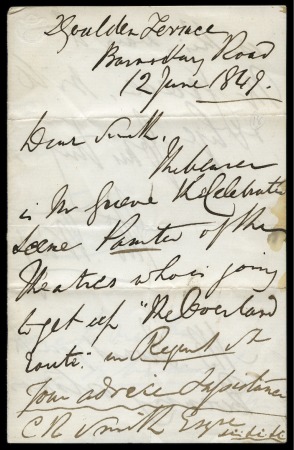 Boulden Terrace
Barnsbury Road
12 June 1849.
Dear Smith,
The bearer
is Mr Grieve the Celebrated
Scene Painter of the
Theatres who is going
to get up "The Overland
route" in Regent St
Your advice & assistance
C R Smith Esqre